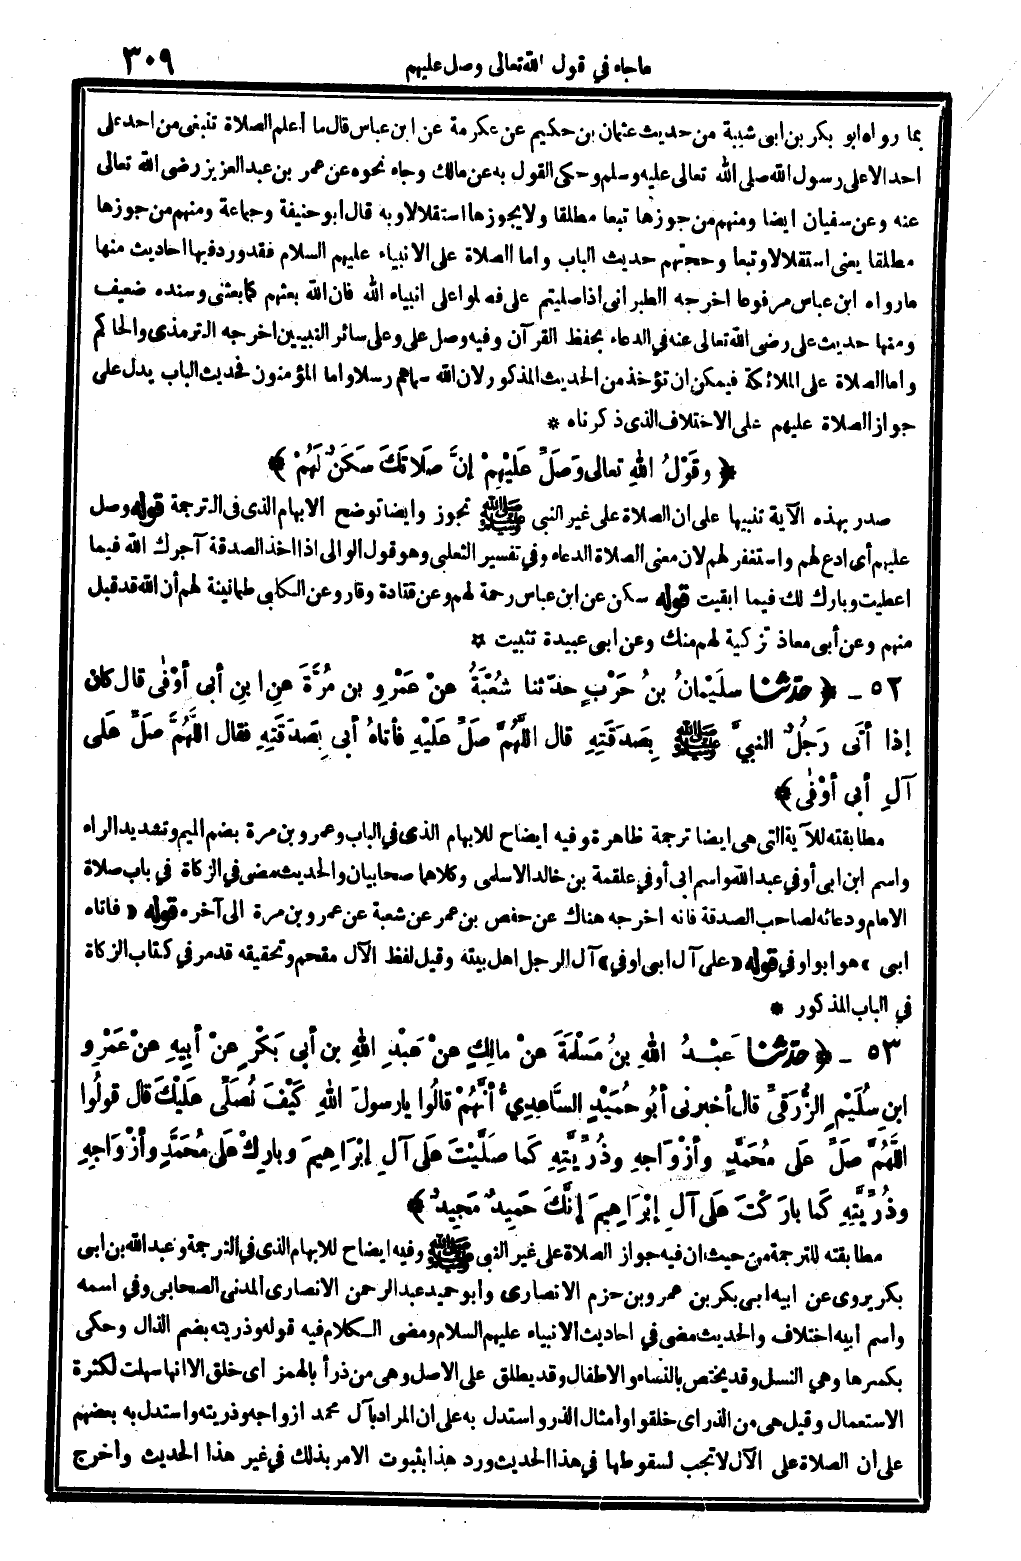 ماجاء في قول الله تعالى وصل عليهم ٣٠٩
بما رواه ابو بكر بن ابى شيبة من حديث عثمان بن حكيم عن عكرمة عن ابن عباس قال ما أعلم الصلاة تنبغى من احد على
احد الا على رسول الله صلى الله تعالى عليه وسلم وحكى القول به عن مالك وجاء نحوه عن عمر بن عبد العزيز رضى الله تعالى
عنه وعن سفيان ايضا ومنهم من جوزها تبعا مطلقا ولا يجوزها استقلالا وبه قال ابو حنيفة وجماعة ومنهم من جوزها
مطلقا يعنى استقلالا وتبعا وحجتهم حديث الباب واما الصلاة على الانبياء عليهم السلام فقد ورد فيها احاديث منها
مارواه ابن عباس مرفوعا اخرجه الطبرانى اذا صليتم على فصلوا على انبياء الله فان الله بعثهم كما بعثنى وسنده ضعيف
ومنها حديث على رضى الله تعالى عنه في الدعاء بحفظ القرآن وفيه وصل على وعلى سائر النبيين اخرجه الترمذى والحاكم
واما الصلاة على الملائكة فيمكن ان تؤخذ من الحديث المذكور لان الله سماهم رسلا واما المؤمنون فحديث الباب يدل على
جواز الصلاة عليهم على الاختلاف الذى ذكرناه *
﴿ وقَوْلُ اللهِ تعالى وَصَلِّ عَلَيْهِمْ إنَّ صَلَاتَكَ سَكَنٌ لَهُمْ ﴾
صدر بهذه الآية تنبيها على ان الصلاة على غير النبى ﷺ تجوز وايضا توضح الابهام الذى فى الترجمة قوله وصل
عليهم أى ادع لهم واستغفر لهم لان معنى الصلاة الدعاء وفي تفسير الثعلبى وهو قول الوالى اذا اخذ الصدقة آجرك الله فيما
اعطيت وبارك لك فيما ابقيت قوله سكن عن ابن عباس رحمة لهم وعن قتادة وقار وعن الكلبى طمانينة لهم أن الله قد قبل
منهم وعن أبى معاذ تزكية لهم منك وعن ابى عبيدة تثبيت *
٥٢ ـ ﴿ حدّثنا سلَيْمانُ بنُ حَرْبٍ حدّثنا شُعْبَةُ عنْ عَمْرِو بن مُرَّةَ عنِ ابنِ أبى أوْفَى قال كانَ
إذا أتَى رَجُلٌ النبيَّ ﷺ بِصَدَقَتِهِ قال اللَّهُمَّ صَلِّ عَلَيْهِ فأتاهُ أبى بِصَدَقَتِهِ فقال اللَّهُمَّ صَلِّ على
آلِ أبى أوْفَى ﴾
مطابقته للآية التى هى ايضا ترجمة ظاهرة وفيه ايضاح للابهام الذى في الباب وعمرو بن مرة بضم الميم وتشديد الراء
واسم ابن ابى أوفي عبد الله واسم ابى أوفي علقمة بن خالد الاسلمى وكلاهما صحابيان والحديث مضى في الزكاة في باب صلاة
الامام ودعائه لصاحب الصدقة فانه اخرجه هناك عن حفص بن عمر عن شعبة عن عمرو بن مرة الى آخره قوله «فاتاه
ابى» هو ابو اوفي قوله «على آل ابى اوفي» آل الرجل اهل بيته وقيل لفظ الآل مقحم وتحقيقه قد مر في كتاب الزكاة
في الباب المذكور *
٥٣ ـ ﴿ حدّثنا عبْدُ اللهِ بنُ مَسْلَمَةَ عنْ مالِكٍ عنْ عَبْدِ اللهِ بن أبى بَكْرٍ عنْ أبِيهِ عنْ عَمْرِو
ابنِ سُلَيْمٍ الزُّرَقىِّ قال أخبرنى أبُو حُمَيْدٍ السَّاعِدِىُّ أنَّهُمْ قالُوا يا رسولَ اللهِ كَيْفَ نُصَلِّى علَيْكَ قال قولُوا
اللَّهُمَّ صَلِّ عَلَى مُحَمَّدٍ وأزْوَاجِهِ وذُرِّيَّتِهِ كَما صَلَّيْتَ علَى آلِ إبْرَاهِيمَ وبارِكْ علَى مُحَمَّدٍ وأزْوَاجِهِ
وذُرِّيَّتِهِ كَما بارَكْتَ علَى آلِ إبْرَاهِيمَ إنَّكَ حَمِيدٌ مَجِيدٌ ﴾
مطابقته للترجمة من حيث ان فيه جواز الصلاة على غير النبى ﷺ وفيه ايضاح للابهام الذى في الترجمة وعبد الله بن ابى
بكر يروى عن ابيه ابى بكر بن عمرو بن حزم الانصارى وأبو حميد عبد الرحمن الانصارى المدنى الصحابى وفي اسمه
واسم ابيه اختلاف والحديث مضى في احاديث الانبياء عليهم السلام ومضى الكلام فيه قوله وذريته بضم الذال وحكى
بكسرها وهي النسل وقد يختص بالنساء والاطفال وقد يطلق على الاصل وهى من ذرأ بالهمز اى خلق الا انها سهلت لكثرة
الاستعمال وقيل هى من الذر اى خلقوا امثال الذر واستدل به على ان المراد بآل محمد ازواجه وذريته واستدل به بعضهم
على ان الصلاة على الآل لا تجب لسقوطها في هذا الحديث ورد هذا بثبوت الامر بذلك في غير هذا الحديث واخرج